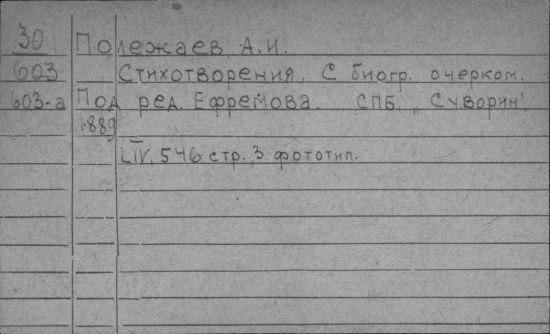 30 Полежаев, А.И.
603 Стихотворения. С биогр. очерком.
603-а Под ред. Ефремова. СПБ, „Суворин",
1889
LIV, 546 стр., 3 фототип.